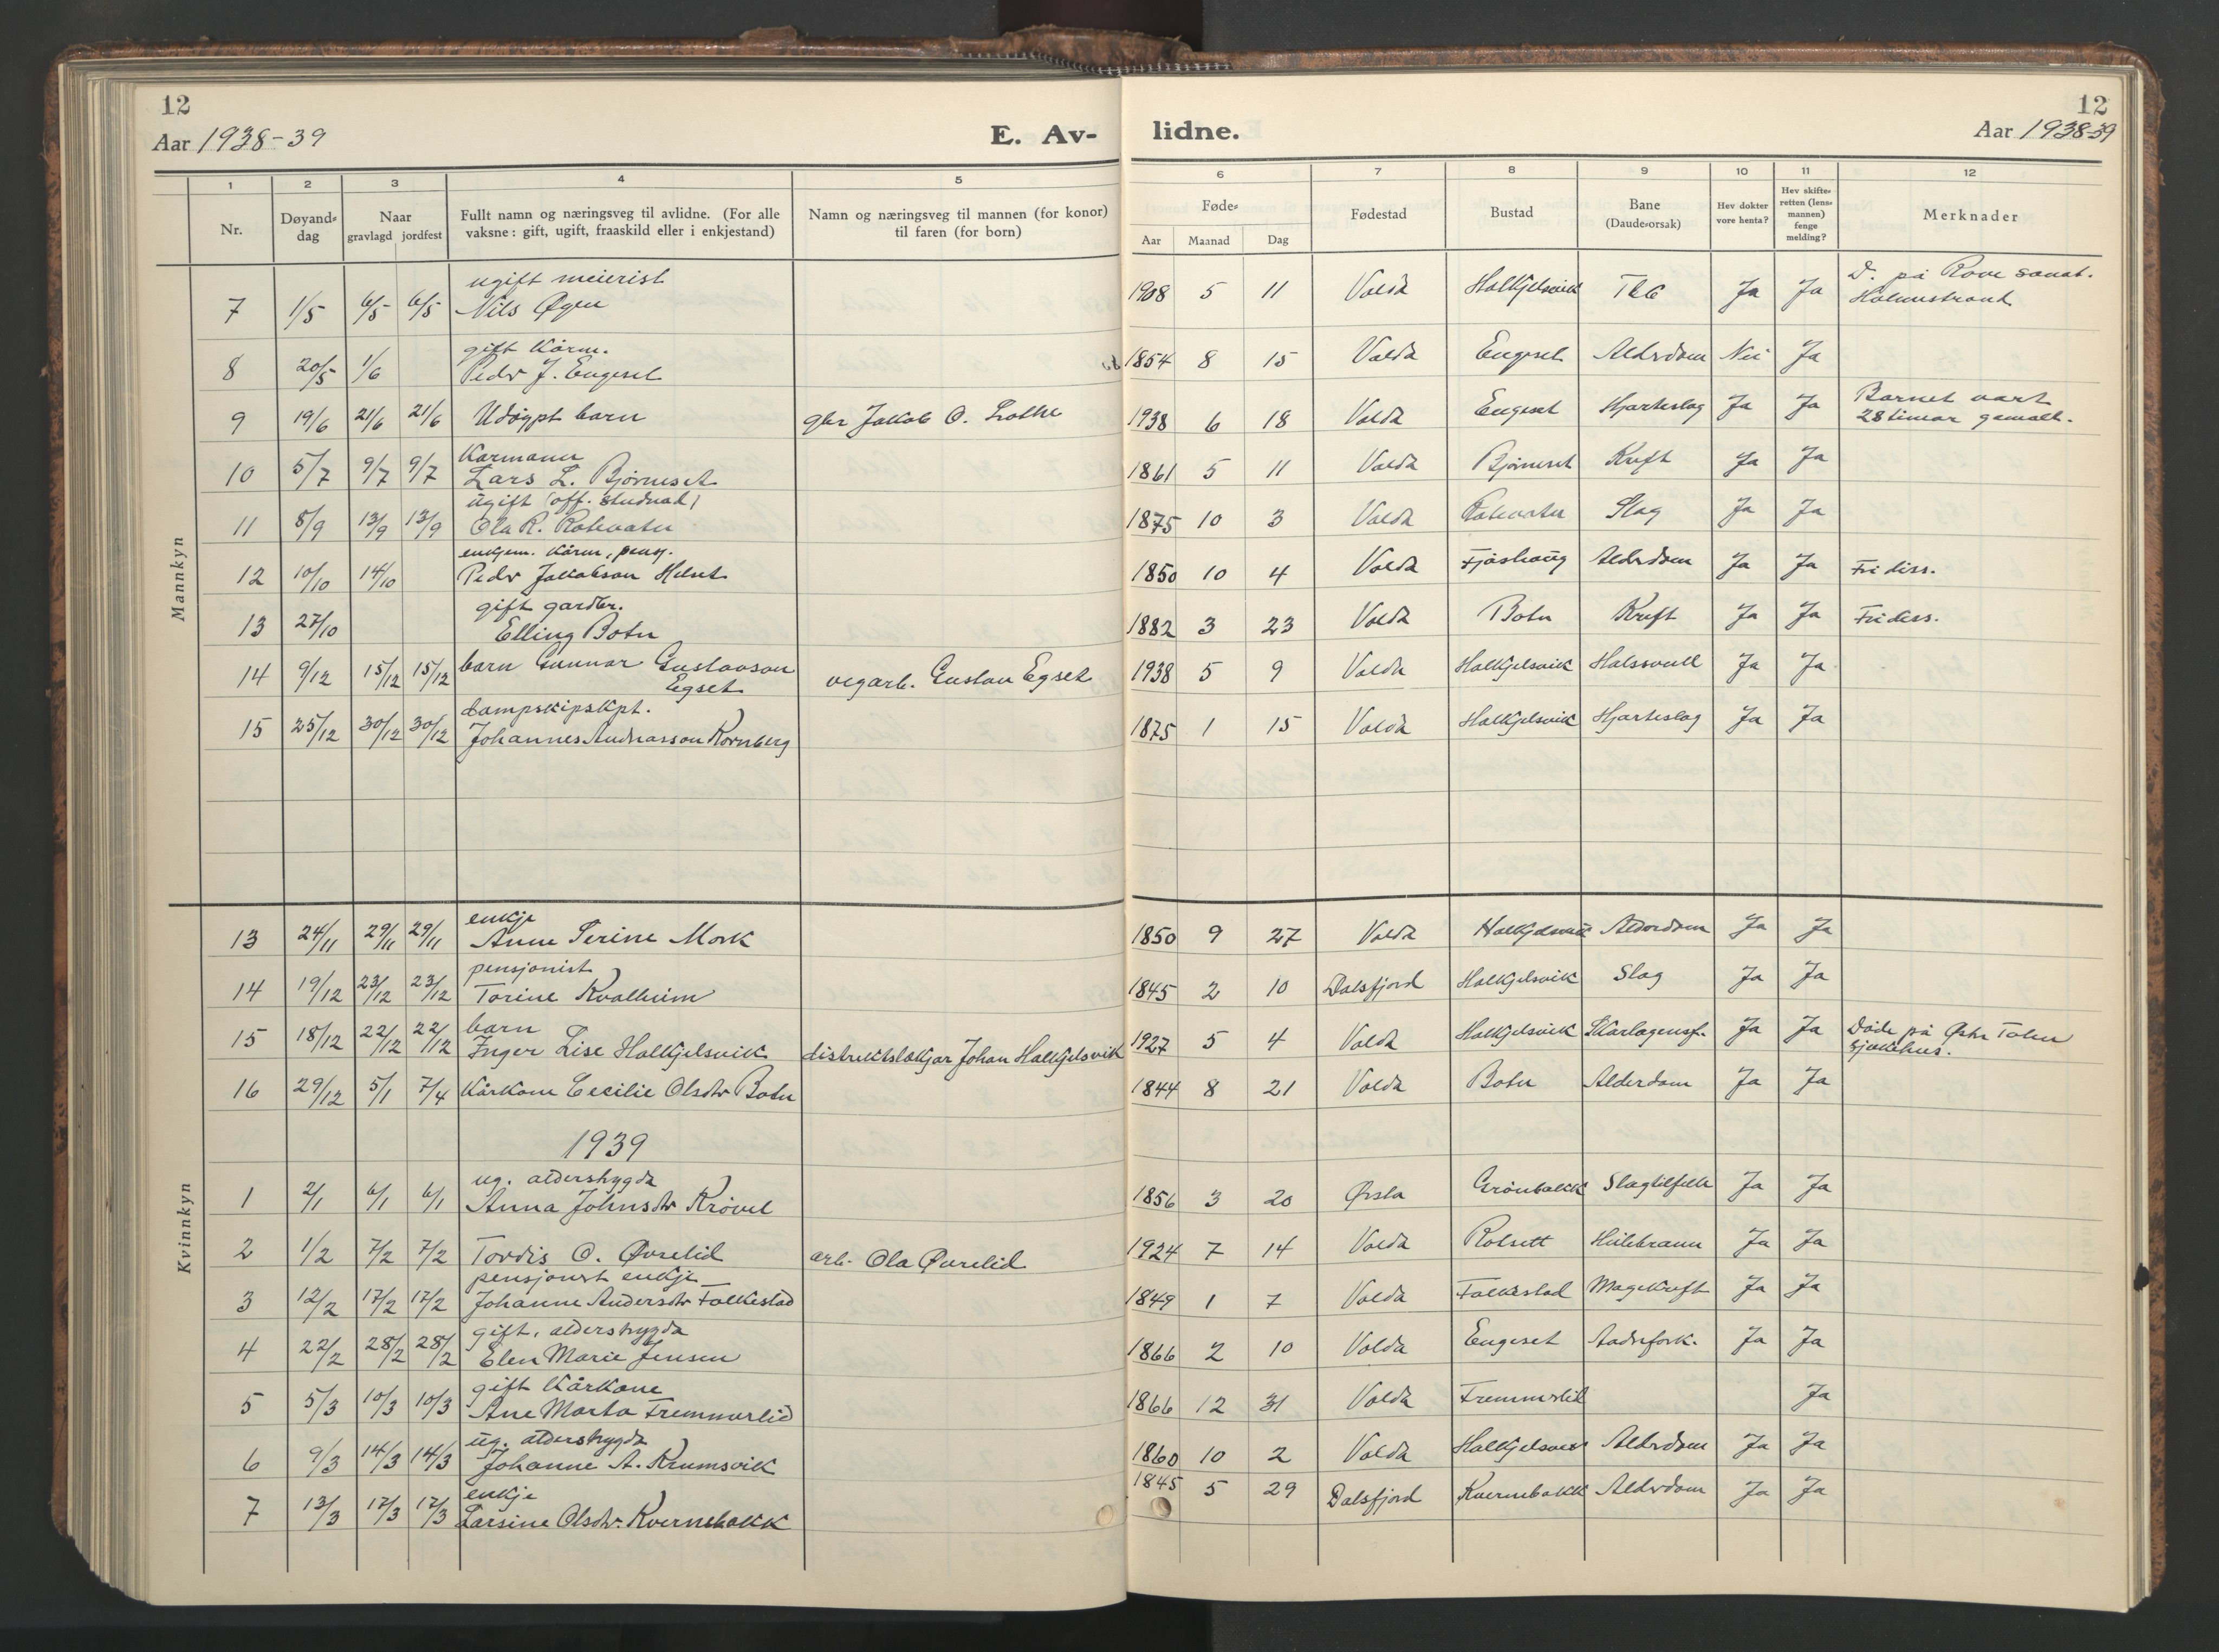 12
Aar 1938-39
E. Av-
lidne.
12
Aar 1938-39
1 2 3 4 5 6 7 8 9 10 11 12
Nr.
Døyand-
dag
Naar
gravlagd jordfest
Fullt namn og næringsveg til avlidne. (For alle
vaksne: gift, ugift, fraaskild eller i enkjestand)
Namn og næringsveg til mannen (for konor)
til faren (for born)
Føde-
Aar Maanad Dag
Fødestad
Bustad
Bane
(Daude-orsak)
Hev dokter
vore henta?
Hev skifte-
retten (lens-
mannen)
fenge
melding?
Merknader
Mannkyn
ugift meierist D. på Rove sanat.
7 1/5 6/5 6/5 Nils Øyen 1908 5 11 Volda Halkjelsvik Tbc Ja Ja Holmestrand
gift kårm.
8 20/5 1/6 Peder J. Engeset 1854 8 15 Volda Engeset Alderdom Nei Ja
Barnet vart
9 19/6 21/6 21/6 Udøypt barn gbr Jakob O. Lothe 1938 6 18 Volda Engeset Hjarteslag Ja Ja 28 timar gamalt.
Karmann
10 5/7 9/7 9/7 Lars L. Bjørneset 1861 5 11 Volda Bjørneset Kreft Ja Ja
ugift (off. studnad)
11 8/9 13/9 13/9 Ola R. Rotevatn 1875 10 3 Volda Rotevatn Slag Ja Ja
enkjem. kårm, pensj.
12 10/10 14/10 Peder Jakobson Helset 1850 10 4 Volda Fjøshaug Alderdom Ja Ja Fri diss.
gift gardbr.
13 27/10 Elling Botn 1882 3 23 Volda Botn Kreft Ja Ja Fri diss.
14 9/12 15/12 15/12 barn Gunnar Gustavson vegarb. Gustav Egset 1938 5 9 Volda Halkjelsvik Halssvull Ja Ja
Egset
dampskipskpt.
15 25/12 30/12 30/12 Johannes Andreasson Kornberg 1875 1 15 Volda Halkjelsvik Hjarteslag Ja Ja
Kvinnkyn
enkje
13 24/11 29/11 29/11 Anne Serine Mork 1850 9 27 Volda Halkjelsvik Alderdom Ja Ja
pensjonist
14 19/12 23/12 23/12 Torine Kvalheim 1845 2 10 Dalsfjord Halkjelsvik Slag Ja Ja
barn Døde på Østre Toten
15 18/12 22/12 22/12 Inger Lise Halkjelsvik distriktslækjar Johan Halkjelsvik 1927 5 4 Volda Halkjelsvik Skarlagensf. Ja Ja sjukehus.
16 29/12 5/1 7/4 Kårkone Cecilie Olsdtr Botn 1844 8 21 Volda Botn Alderdom Ja Ja
1939
ug. alderstrygda
1 2/1 6/1 6/1 Anna Johnsdtr Krøvel 1856 3 20 Ørsta Grønbakk Slagtilfelle Ja Ja
2 1/2 7/2 7/2 Tordis O. Øvrelid arb. Ola Øvrelid 1924 7 14 Volda Rotsett Heilebrann Ja Ja
pensjonist enkje
3 12/2 17/2 17/2 Johanne Andersdtr Folkestad 1849 1 7 Volda Folkestad Magekreft Ja Ja
gift, alderstrygda
4 22/2 28/2 28/2 Elen Marie Jensen 1866 2 10 Volda Engeset Aadrefork. Ja Ja
gift kårkone
5 5/3 10/3 10/3 Ane Marta Fremmerlid 1866 12 31 Volda Fremmerlid Ja
ug. alderstrygda
6 9/3 14/3 14/3 Johanne A. Krumsvik 1860 10 2 Volda Halkjelsvik Alderdom Ja Ja
enkje
7 13/3 17/3 17/3 Larsine Olsdtr. Kvernebakk 1845 5 29 Dalsfjord Kvernebakk Alderdom Ja Ja